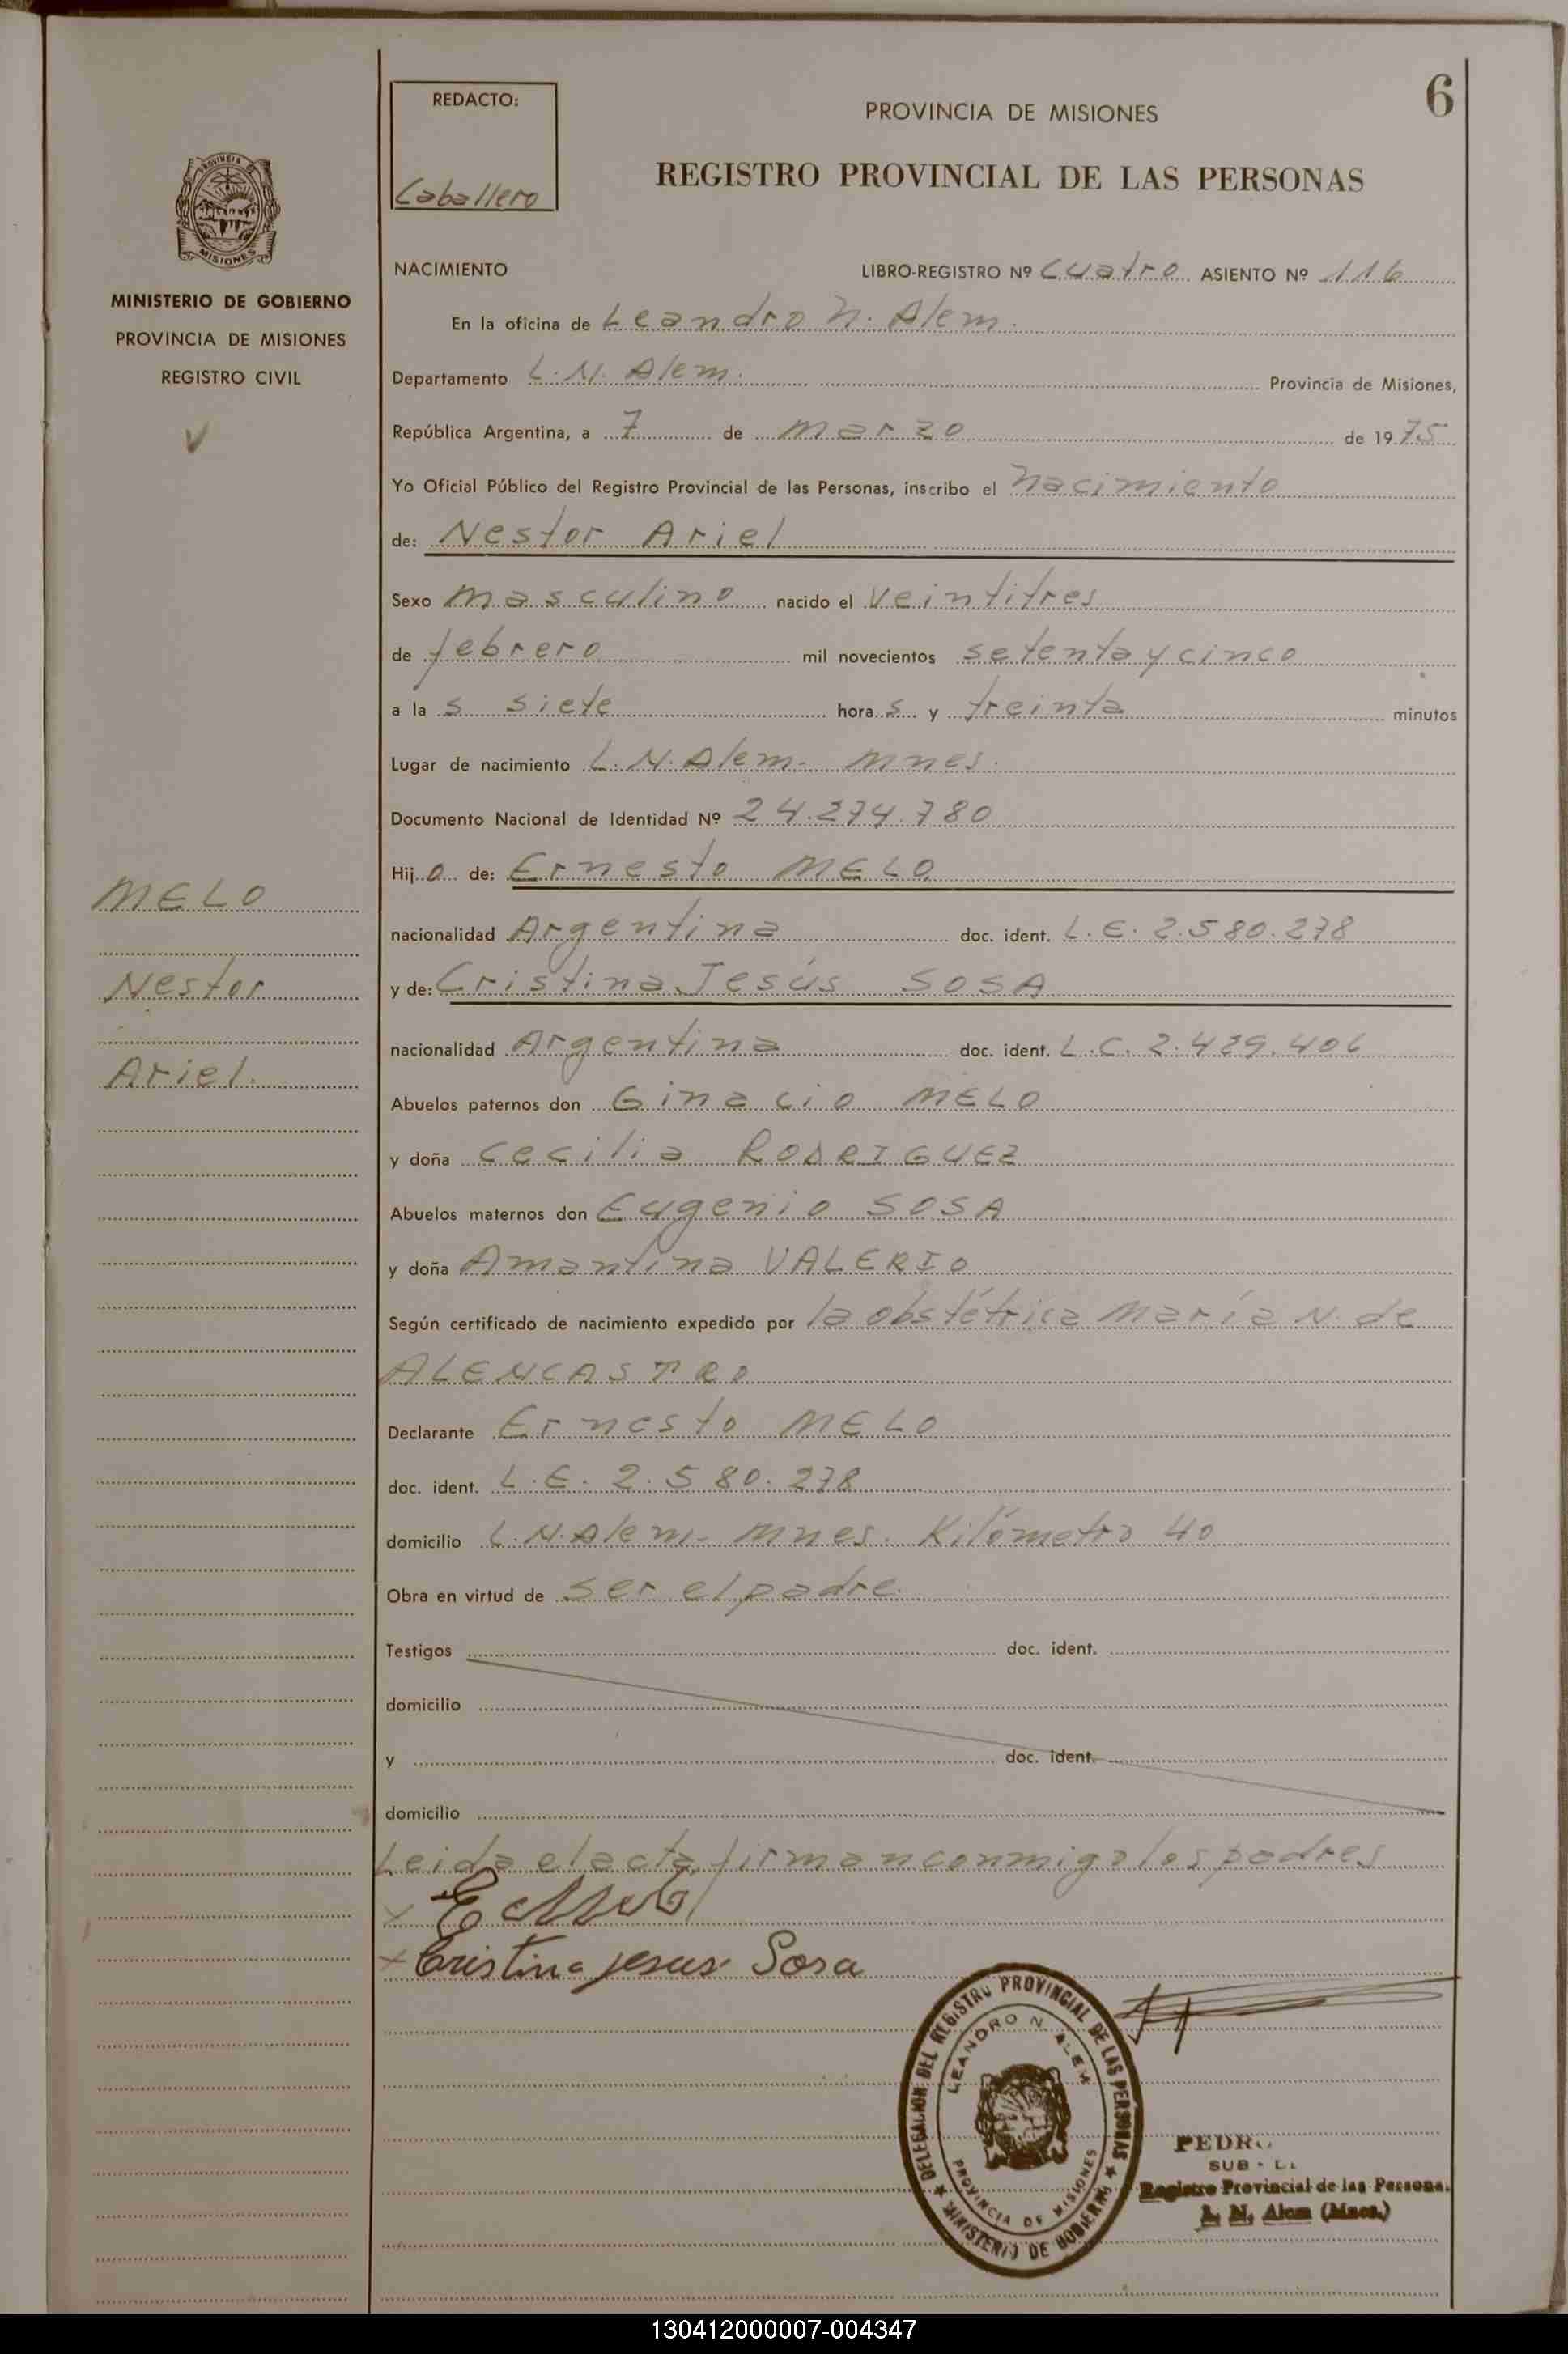 6
REDACTO:
Caballero
PROVINCIA DE MISIONES
REGISTRO PROVINCIAL DE LAS PERSONAS
PROVINCIA
MISIONES
MINISTERIO DE GOBIERNO
PROVINCIA DE MISIONES
REGISTRO CIVIL
NACIMIENTO LIBRO-REGISTRO Nº Cuatro ASIENTO Nº 116
En la oficina de Leandro N. Alem.
Departamento L. N. Alem. Provincia de Misiones,
República Argentina, a 7 de marzo de 1975
Yo Oficial Público del Registro Provincial de las Personas, inscribo el nacimiento
de: Nestor Ariel
Sexo masculino nacido el veintitres
de febrero mil novecientos setenta y cinco
a la s siete hora s y treinta minutos
Lugar de nacimiento L. N. Alem- Mnes.
Documento Nacional de Identidad Nº 24.274.780
Hij o de: Ernesto MELO
MELO
nacionalidad Argentina doc. ident. L. E. 2.580.278
Nestor
y de: Cristina Jesús SOSA
nacionalidad Argentina doc. ident. L. C. 2.429.406
Ariel.
Abuelos paternos don Ginacio MELO
y doña Cecilia RODRIGUEZ
Abuelos maternos don Eugenio SOSA
y doña Amantina VALERIO
Según certificado de nacimiento expedido por la obstétrica María N. de
ALENCASTRO
Declarante Ernesto MELO
doc. ident. L. E. 2.580.278
domicilio L. N. Alem- Mnes. Kilómetro 40
Obra en virtud de ser el padre.
Testigos doc. ident.
domicilio
y doc. ident.
domicilio
Leida el acta, firman conmigo los padres
x
x Cristina Jesus Sosa
DELEGACION DEL REGISTRO PROVINCIAL DE LAS PERSONAS
MINISTERIO DE GOBIERNO
LEANDRO N. ALEM
PROVINCIA DE MISIONES
SUB -
Registro Provincial de las Persona.
L. N. Alem (Mnes.)
130412000007-004347